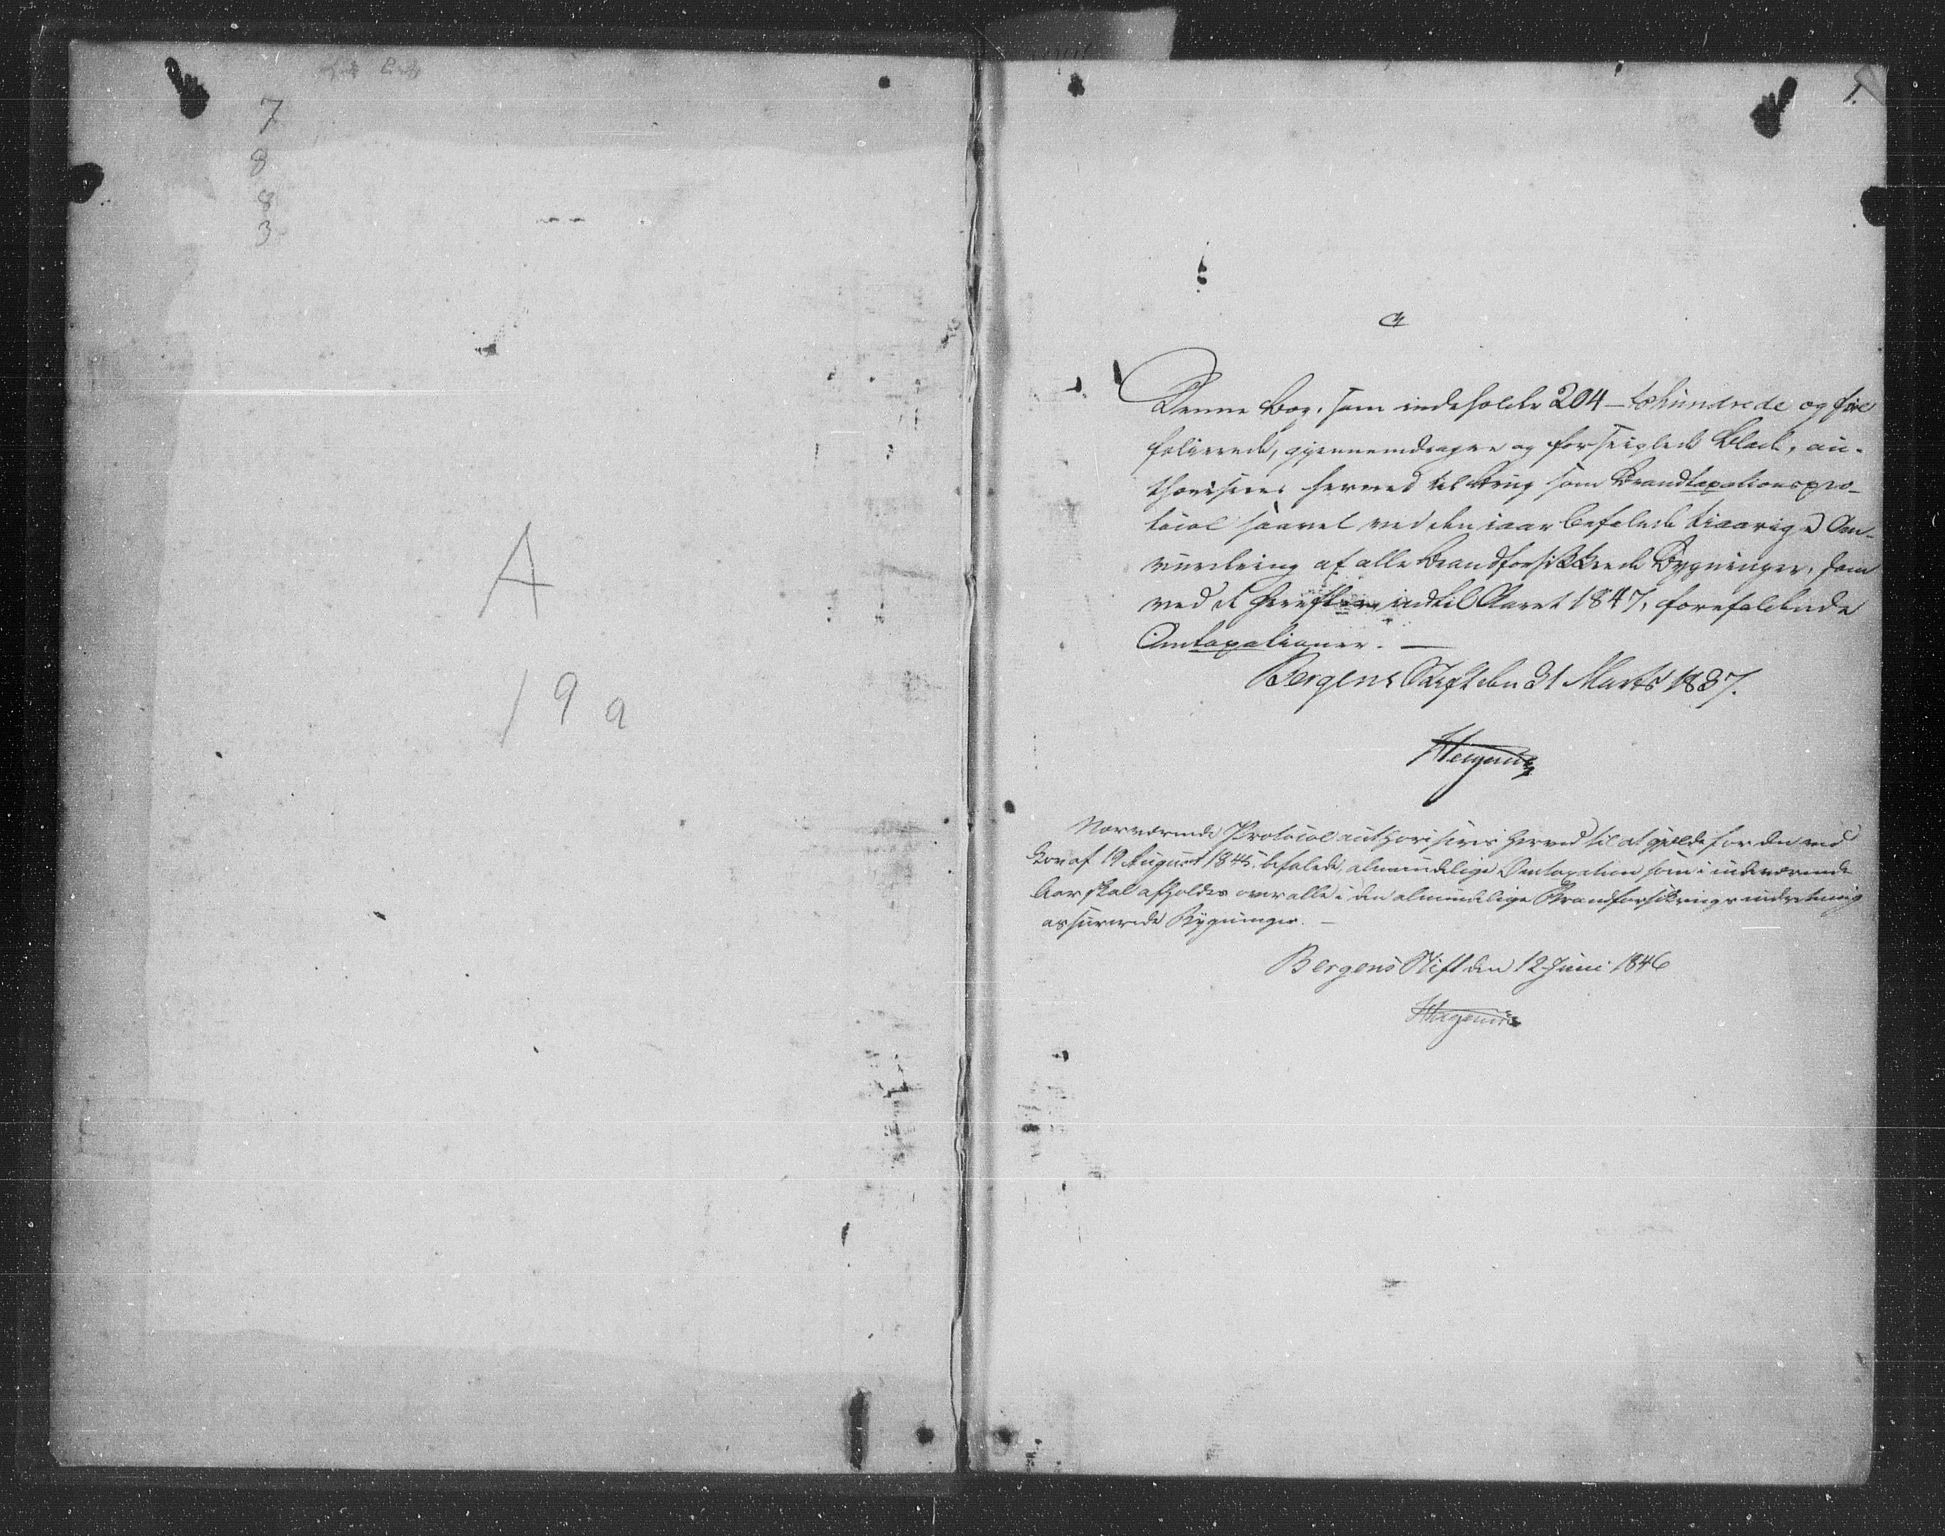 7
8
8
3
A
19a
1.
Denne Bog, som indeholder 204 – tohundrede og fire
folierede, gjennemdragne og forseiglede Blade, au-
thoriseres herved til Brug som Brandtaxationspro-
tocol saavel ved den iaar befalede tiaarige Om-
vurdering af alle brandforsikkrede Bygninger, som
ved de herefter indtil Aaret 1847, forefaldende
Omtaxationer. —
Bergens Stift den 31 Marts 1837.
Hagerup
Nærværende Protocol authoriseres herved til at gjelde for den ved
Lov af 19 August 1845 befalede, almindelige Omtaxation som i indeværende
Aar skal afholdes over alle i den almindelige Brandforsikringsindretning
assurerede Bygninger. —
Bergens Stift den 12 Juni 1846
Hagerup